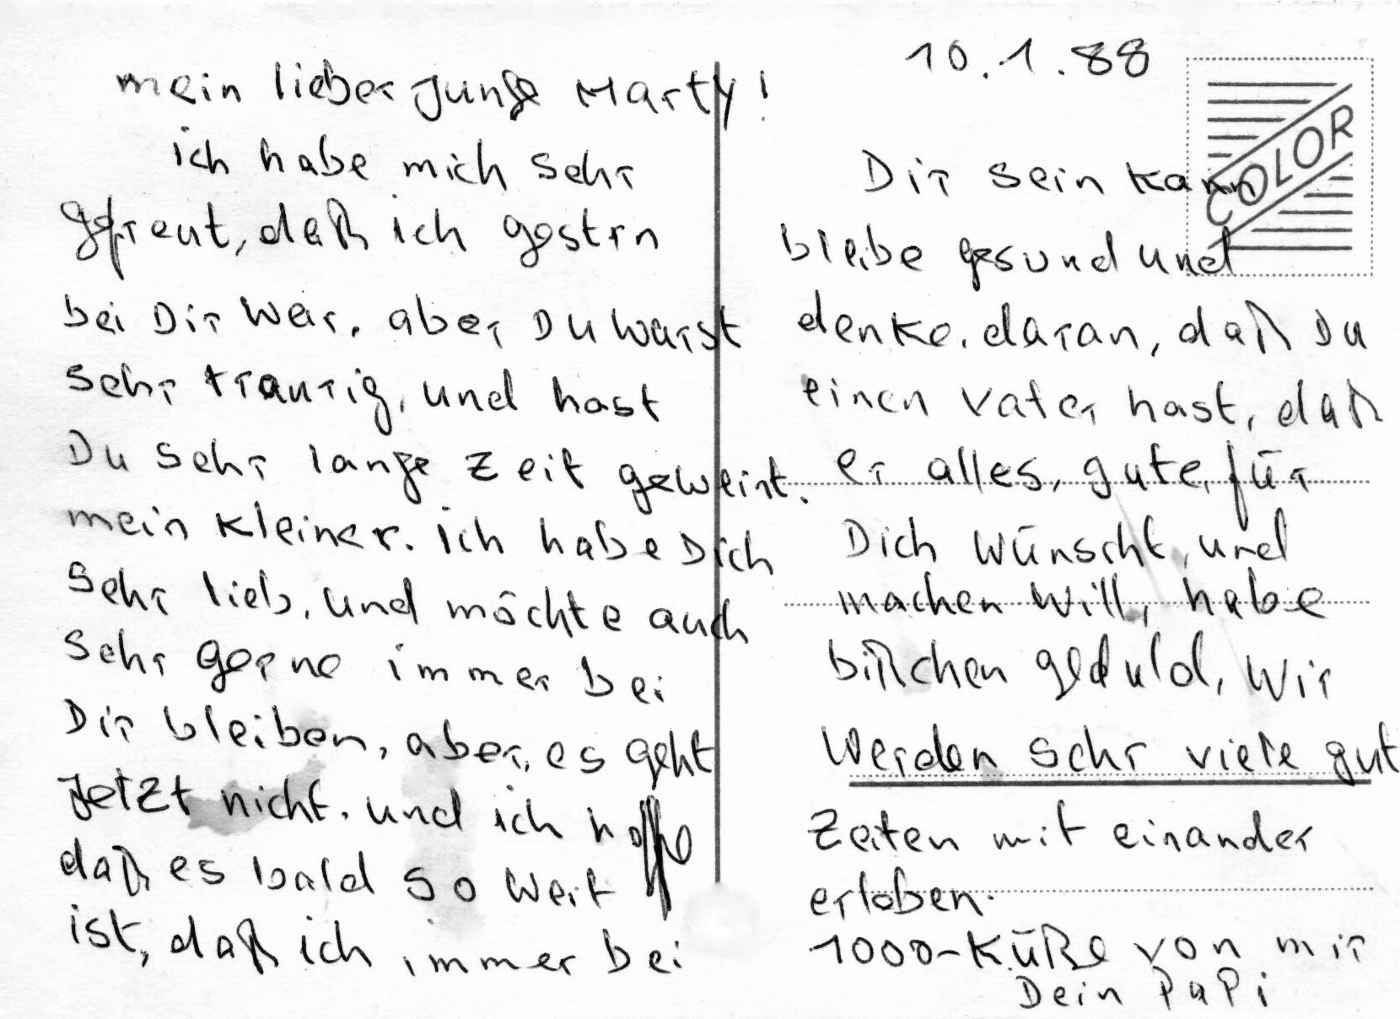 mein lieber Junge Marty!
ich habe mich sehr
gefreut, daß ich gestern
bei Dir war. aber Du warst
sehr traurig, und hast
Du sehr lange Zeit geweint.
mein kleiner. ich habe Dich
sehr lieb, und möchte auch
sehr gerne immer bei
Dir bleiben, aber, es geht
Jetzt nicht. und ich hoffe
daß es bald so weit
ist, daß ich immer bei
10.1.88
COLOR
Dir sein kann
bleibe gesund und
denke. daran, daß Du
einen vater hast, daß
er alles, gute, für
Dich wünscht, und
machen will, habe
bißchen geduld, wir
werden sehr viele gut
Zeiten mit einander
erleben.
1000-Küße von mir
Dein PaPi